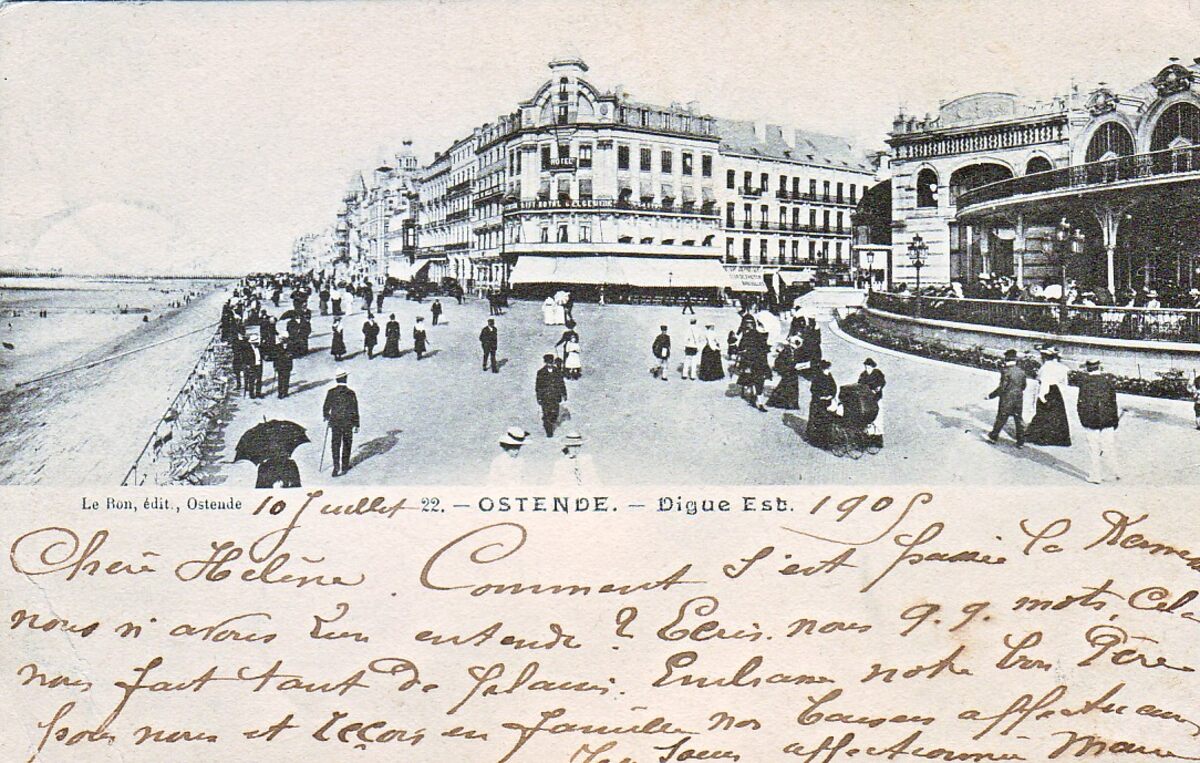 HOTEL
Le Bon, édit., Ostende 10 Juillet 22. — OSTENDE. — Digue Est. 1905
Chère Hélène. Comment s'est passée la
nous n'avons rien entendu? Ecris-nous q.q. mots, Cela
nous fait tant de plaisir. Embrasse notre bon Père
pour nous et reçois en famille nos baisers affectueux
Ta Soeur affectionnée Marie